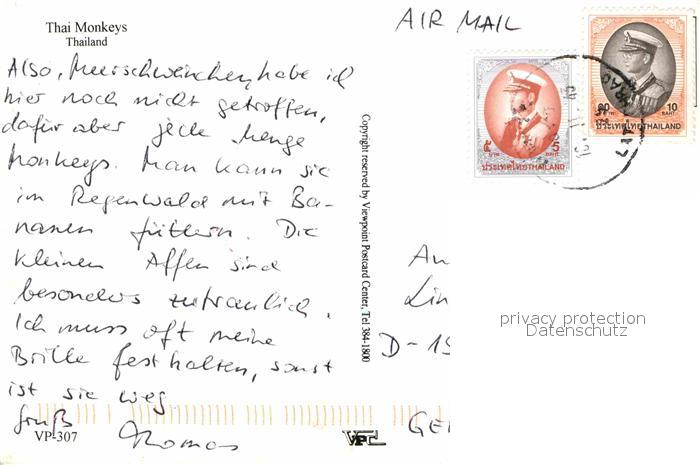 Thai Monkeys
Thailand
AIR MAIL
Also, Meerschweinchen, habe ich
hier noch nicht getroffen,
dafür aber jede Menge
Monkeys. Man kann sie
im Regenwald mit Ba-
nanen füttern. Die
kleinen Affen sind
besonders zutraulich.
Ich muss oft meine
Brille festhalten, sonst
ist sie weg
Gruß
Thomas
VP-307
Copyright reserved by Viewpoint Postcard Center, Tel 384-1800
VPC
๕ บาท
5 BAHT
ประเทศไทย THAILAND
๑๐ บาท
10 BAHT
ประเทศไทย THAILAND
An
Lin
D-19
GE
privacy protection
Datenschutz